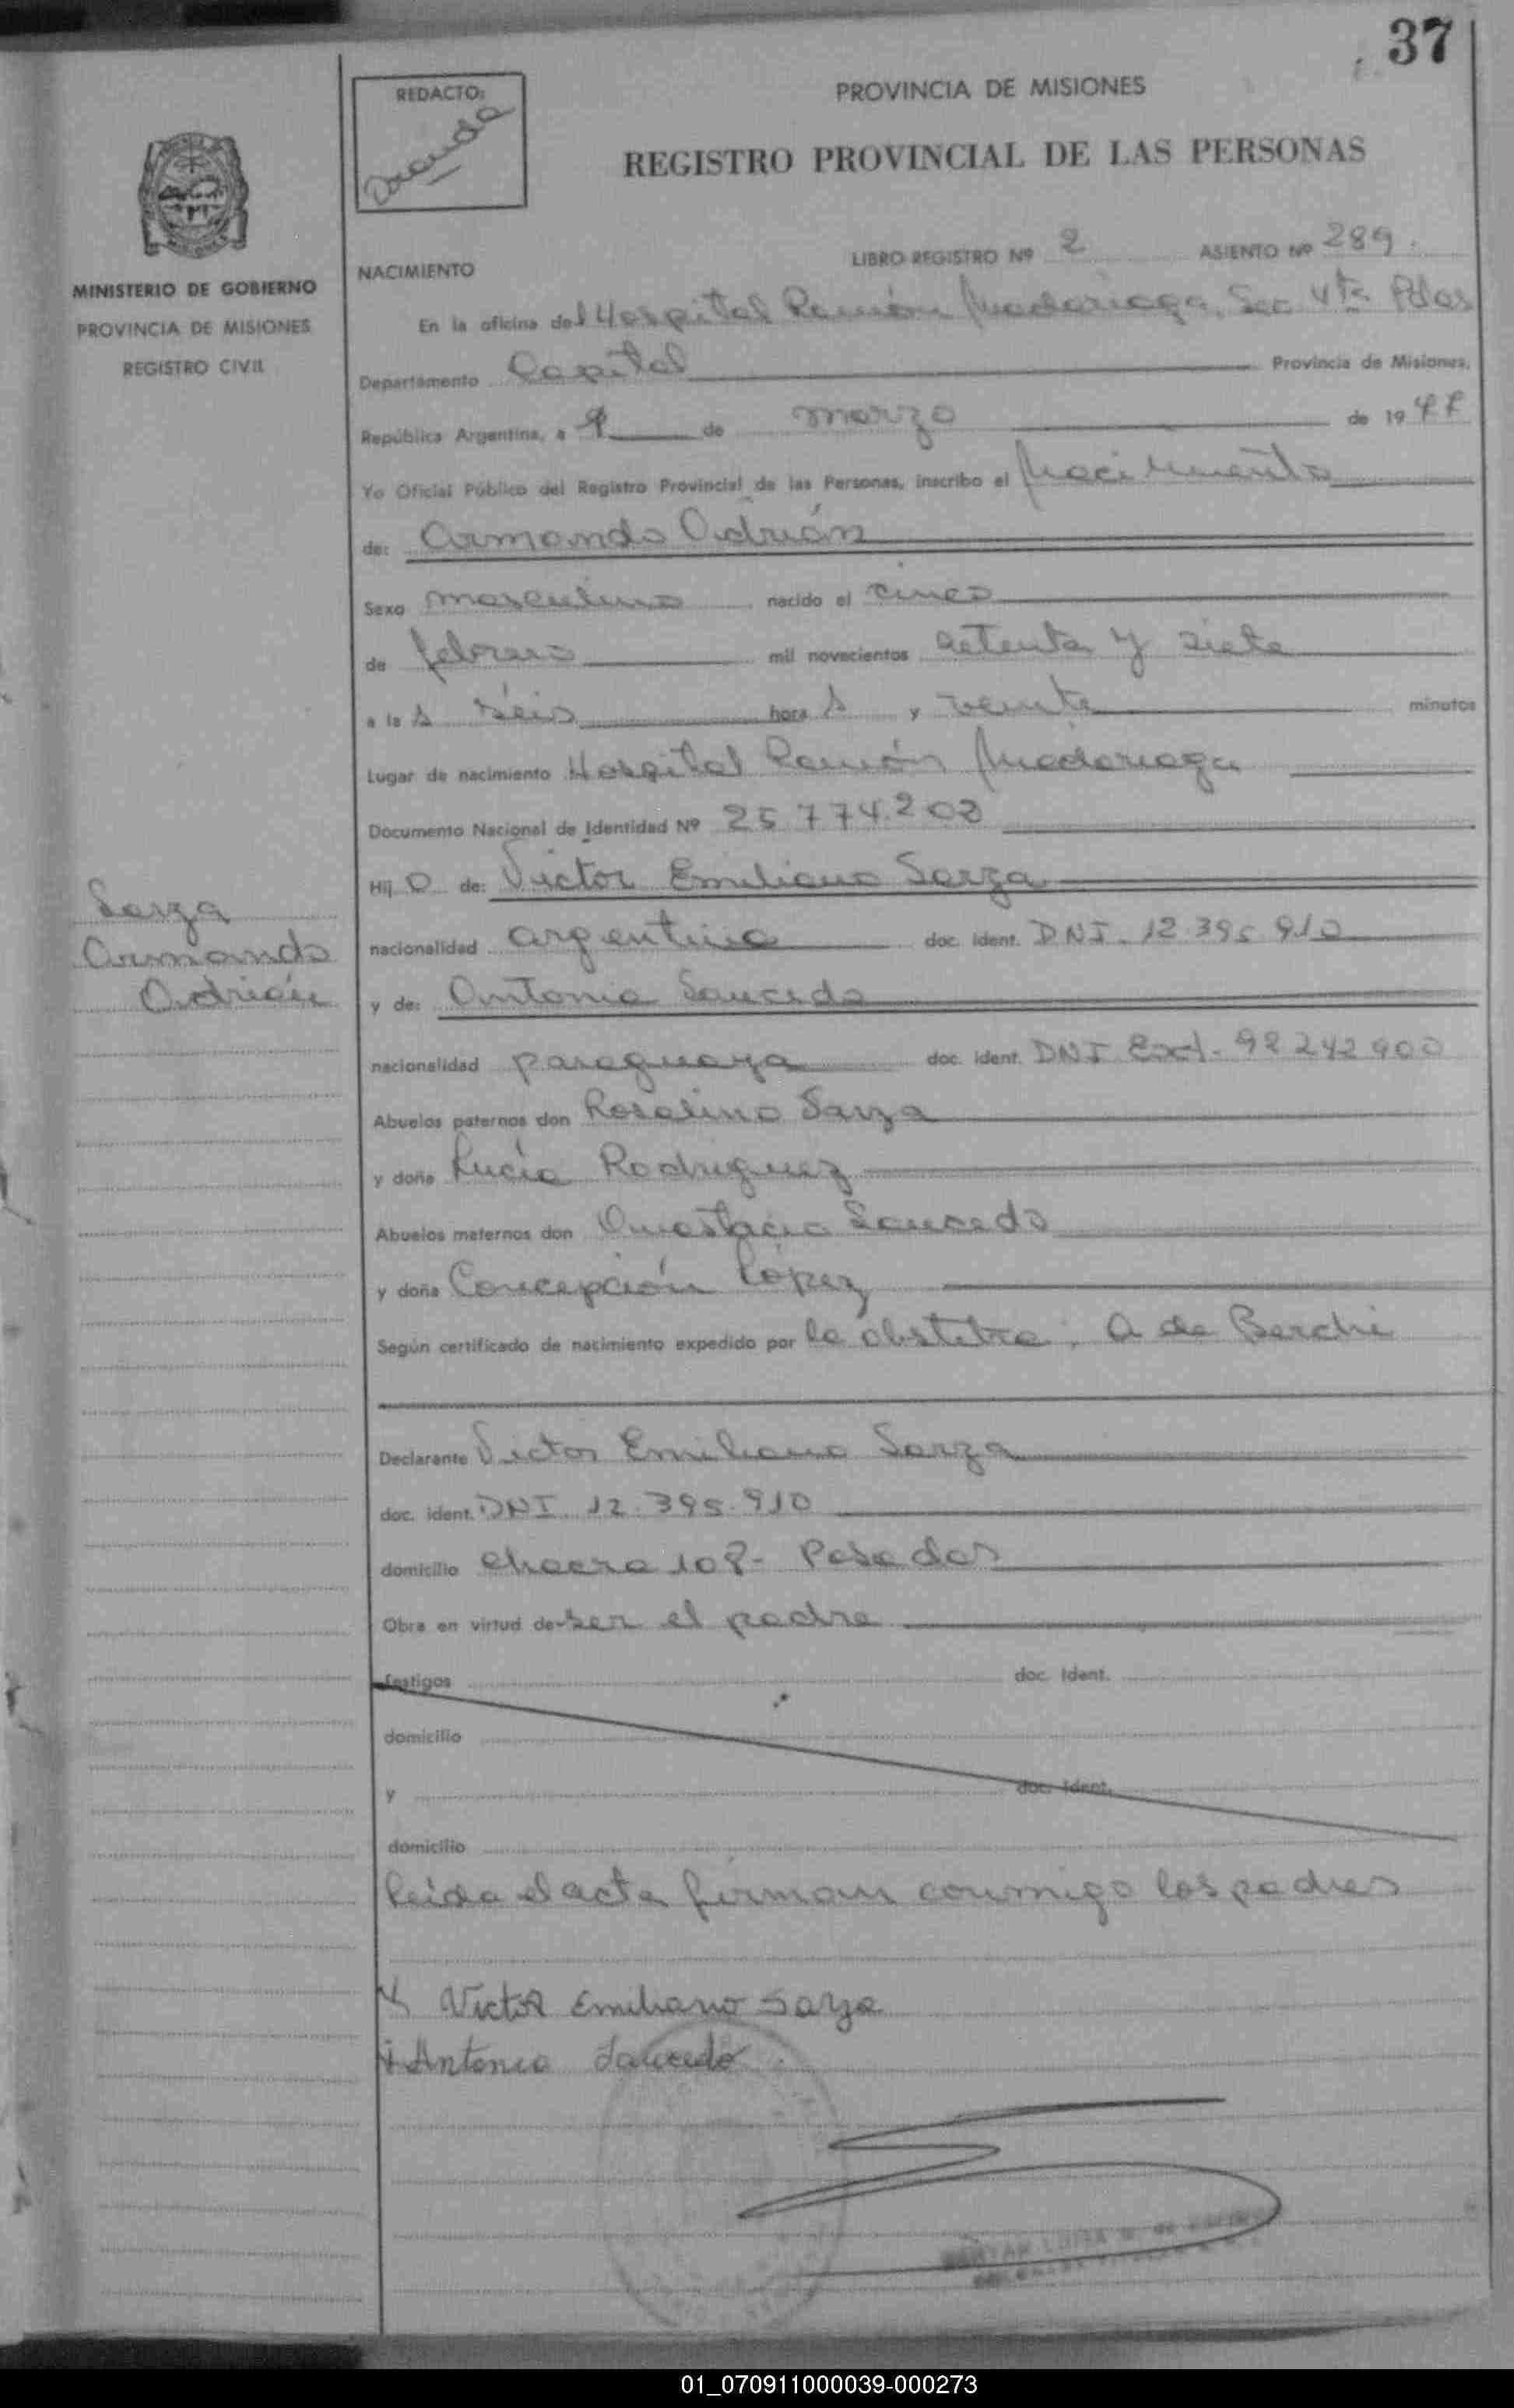 37
REDACTO:
PROVINCIA DE MISIONES
REGISTRO PROVINCIAL DE LAS PERSONAS
MINISTERIO DE GOBIERNO
PROVINCIA DE MISIONES
REGISTRO CIVIL
LIBRO REGISTRO Nº 2 ASIENTO Nº 289.
NACIMIENTO
En la oficina del Hospital Ramón Madariaga, Sec. 4ta Pdas
Departamento Capital Provincia de Misiones,
República Argentina, a de marzo de 19
Yo Oficial Público del Registro Provincial de las Personas, inscribo el Nacimiento
de: Armando Adrián
Sexo masculino nacido el cinco
de febrero mil novecientos setenta y siete
a la s séis hora s y veinte minutos
Lugar de nacimiento Hospital Ramón Madariaga
Documento Nacional de Identidad Nº 25.774.202
Hij o de: Victor Emiliano Sarza
nacionalidad argentina doc. ident. DNI. 12.395.910
y de: Antonia Saucedo
nacionalidad paraguaya doc. ident. DNI Ext. 92.242.900
Abuelos paternos don Rosalino Sarza
y doña Lucía Rodriguez
Abuelos maternos don Anastacio Saucedo
y doña Concepción López
Según certificado de nacimiento expedido por la obstetra, A de Berchi
Sarza
Armando
Adrián
Declarante Victor Emiliano Sarza
doc. ident. DNI. 12.395.910
domicilio chacra 108- Posadas
Obra en virtud de ser el padre
testigos doc. Ident.
domicilio
y doc. Ident.
domicilio
leída el acta firman conmigo los padres
Victor Emiliano Sarza
Antonia Saucedo
01_070911000039-000273